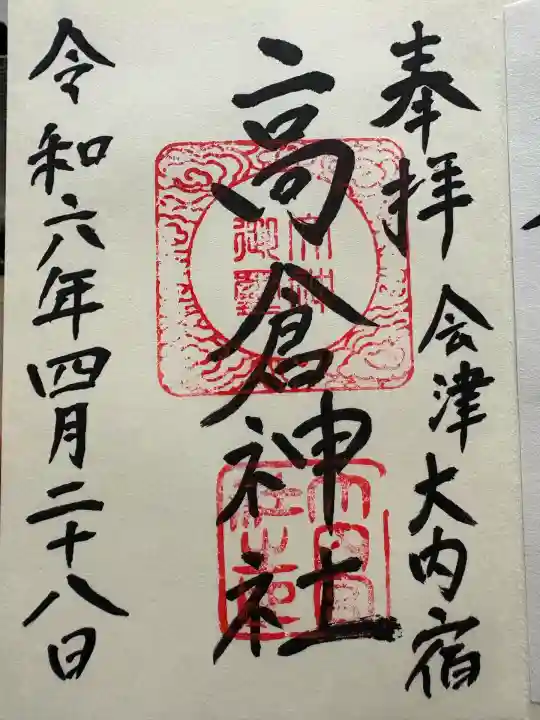 奉拝 会津大内宿
高倉神社
令和六年四月二十八日